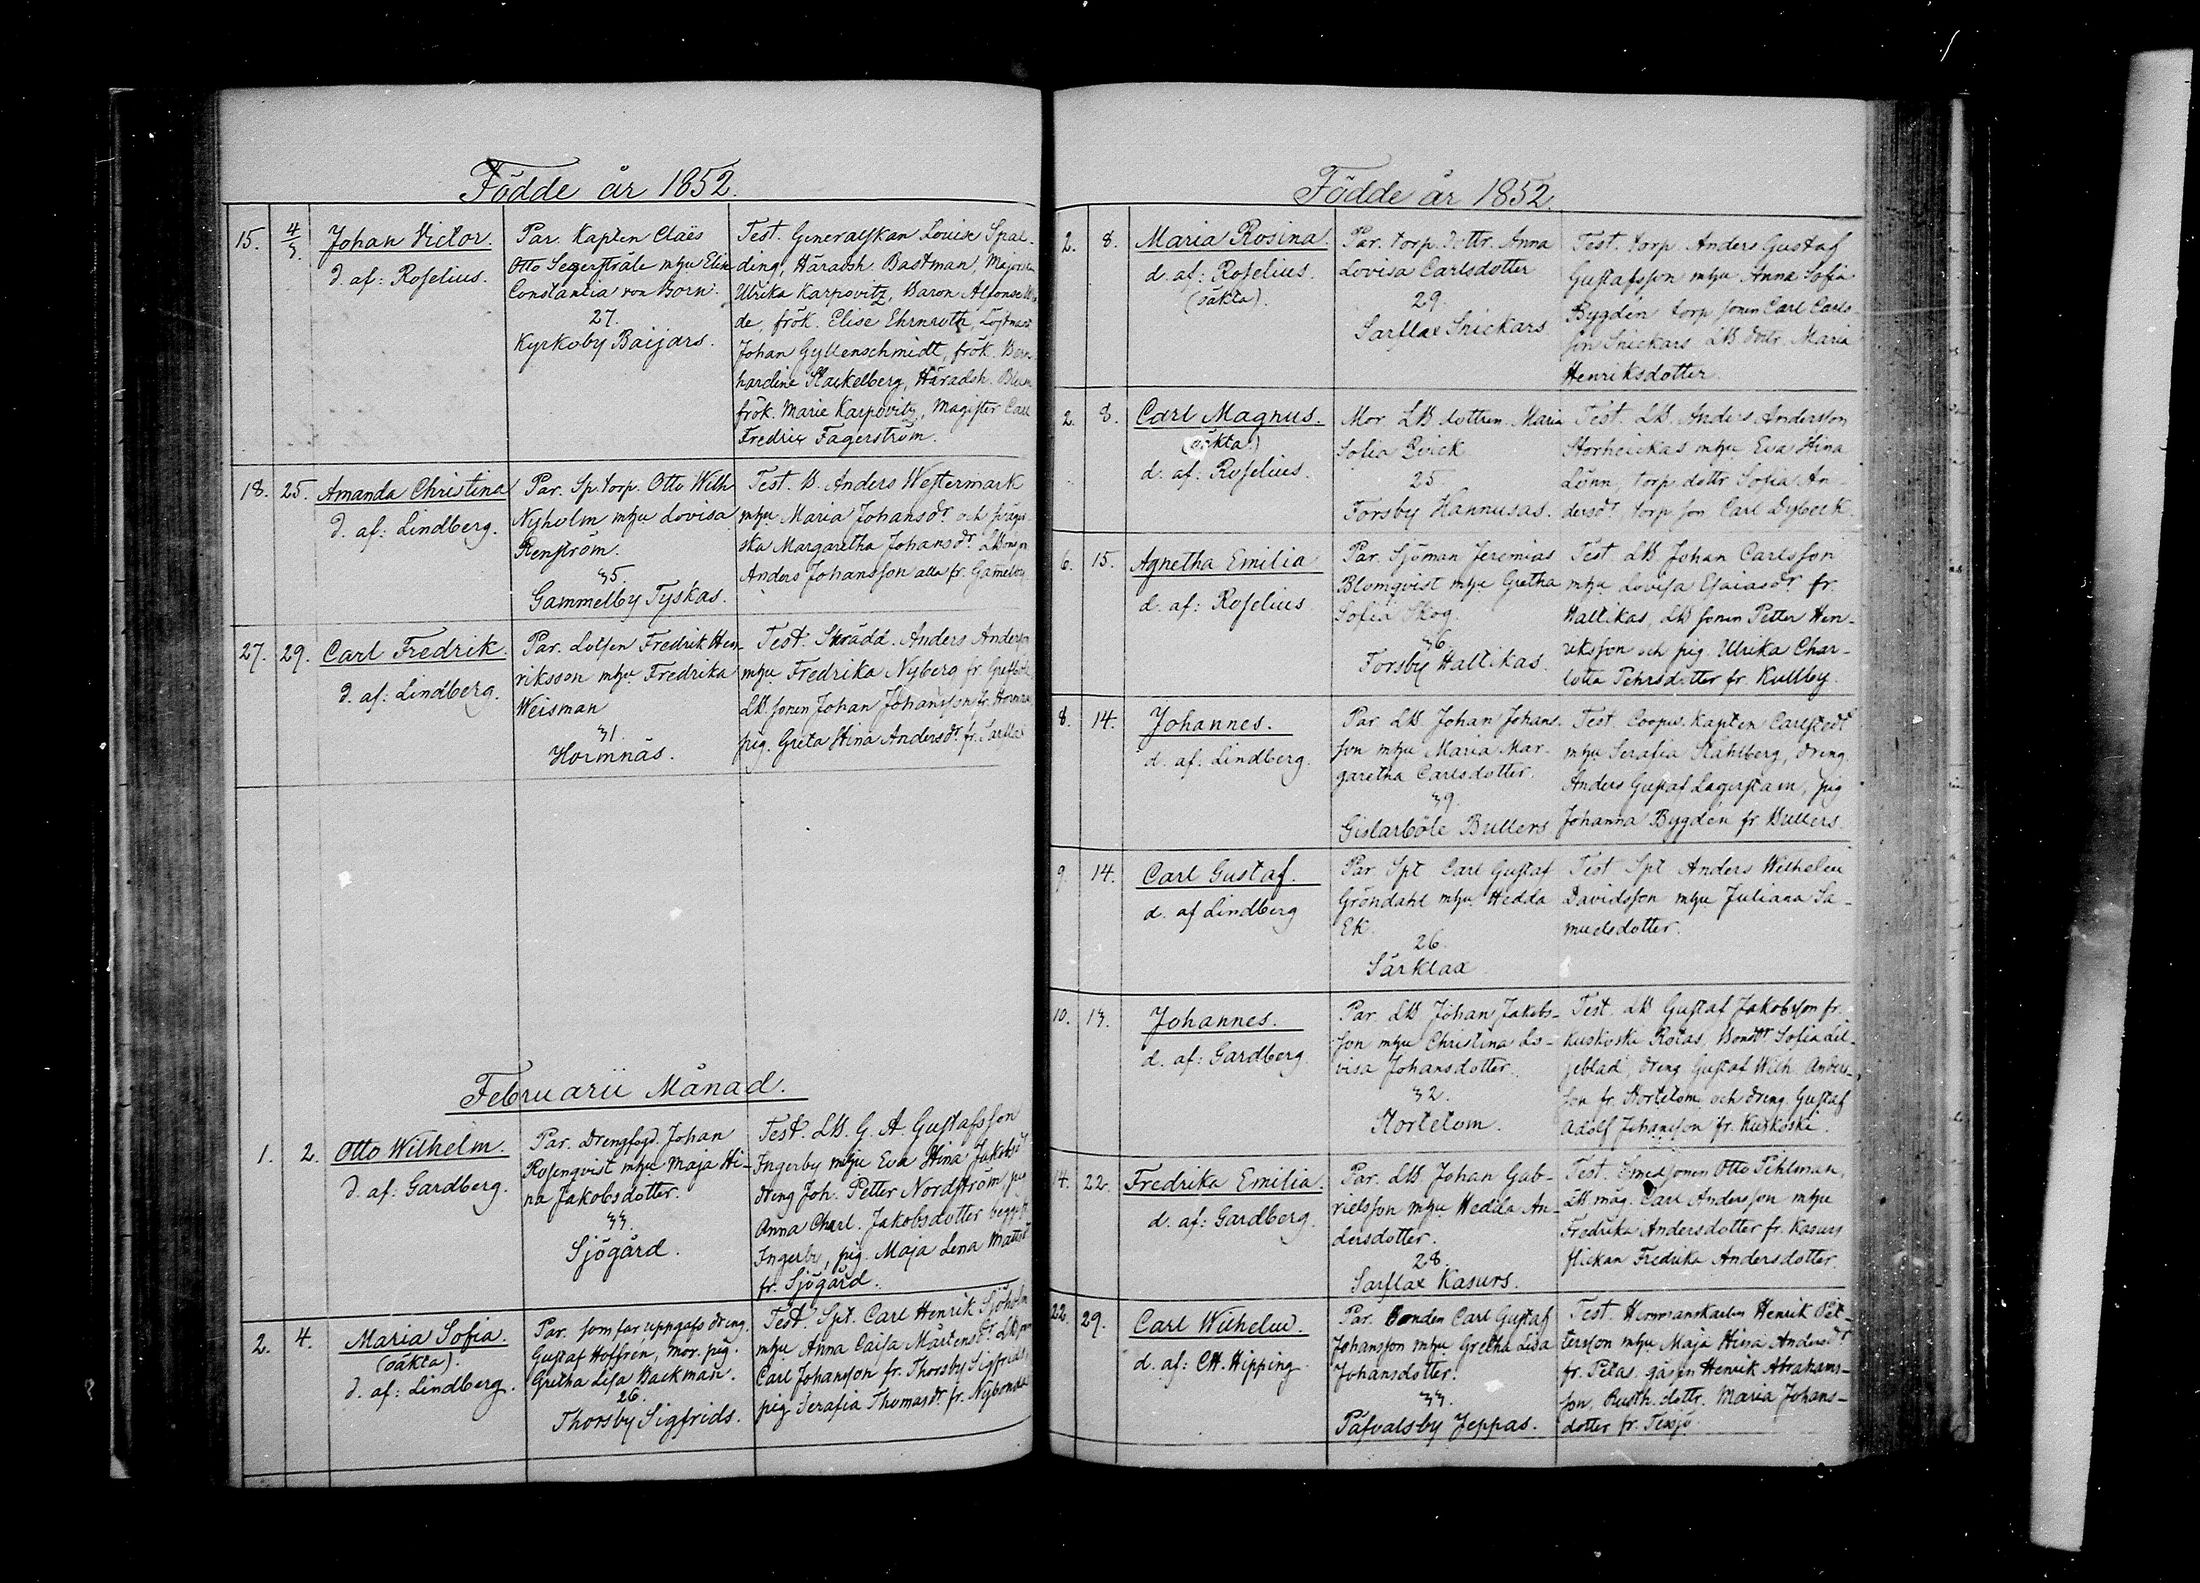 Födde år 1852.
15. 4/3. Johan Victor.
d. af: Roselius.
Par. Kapten Claës
Otto Segerstråle m hu Elise
Constantia von Born.
27.
Kyrkoby Baijars.
Test. Generalskan Louise Spal-
ding, Häradsh. Bastman, Majorskan
Ulrika Karpovitz, Baron Alfonse
de, frök. Elise Ehrnrooth, Löjtnant
Johan Gyllenschmidt, frök. Bern-
hardine Stackelberg, Häradsh.
frök. Marie Karpovitz, Magister Carl
Fredric Fagerström.
18. 25. Amanda Christina
d. af: Lindberg.
Par. Sp. torp. Otto Wilh
Nyholm m hu Lovisa
Renström.
35.
Gammelby Tyskas.
Test. B. Anders Westermark
m hu Maria Johansdr och
Margaretha Johansdr
Anders Johansson alla fr. Gamelby
27. 29. Carl Fredrik.
d. af: Lindberg.
Par. Lotsen Fredrik Hen-
riksson m hu Fredrika
Weisman
31.
Hormnäs.
Test. Skrädd. Anders Anderss
m hu Fredrika Nyberg fr.
LB. sonen Johan Johansson fr. Hormnäs
pig. Greta Stina Andersdr fr. Sarflax
Februarii Månad.
1. 2. Otto Wilhelm.
d. af: Gardberg.
Par. Drengfogd. Johan
Rosenqvist m hu Maja Sti-
na Jakobsdotter.
33.
Sjögård.
Test. LB. G. A. Gustafsson
Ingerby m hu Eva Stina Jakobsd
dreng Joh. Petter Nordström pig
Anna Charl. Jakobsdotter begge fr
Ingerby, pig. Maja Lena Mattsdr
fr. Sjögård.
2. 4. Maria Sofia.
(oäkta).
d. af: Lindberg.
Par. som far uppgafs dreng.
Gustaf Hoffren, mor. pig.
Gretha Lisa Backman.
26.
Thorsby Sigfrids.
Test. Spt. Carl Henrik Sjöholm
m hu Anna Caisa Mårtensdr LB son
Carl Johansson fr. Thorsby Sigfrids,
pig. Serafia Thomasdr fr. Nybonda
Födde år 1852.
2. 8. Maria Rosina.
d. af: Roselius.
(oäkta).
Par. torp. dottr. Anna
Lovisa Carlsdotter
29.
Sarflax Snickars
Test. torp. Anders Gustaf
Gustafsson m hu Anna Sofia
Bygdén torp sonen Carl Carls
son Snickars LB dotr. Maria
Henriksdotter.
2. 8. Carl Magnus.
(oäkta)
d. af. Roselius.
Mor. LB. dottren Maria
Sofia Qvick
25.
Forsby Hannusas.
Test. LB. Anders Andersson
Storheickas m hu Eva Stina
Lönn, torp. dottr Sofia An-
dersdr. torp son Carl Dybeck.
6. 15. Agnetha Emilia
d. af: Roselius
Par. Sjöman Jeremias
Blomqvist m hu Gretha
Sofia Skog.
36.
Forsby Hallikas.
Test LB Johan Carlsson
m hu Lovisa Esaiasdr fr.
Hallikas, LB sonen Petter Hen-
riksson och pig. Ulrika Char-
lotta Pehrsdotter fr. Kullby.
8. 14. Johannes.
d. af: Lindberg.
Par. LB Johan Johans-
son m hu Maria Mar-
garetha Carlsdotter.
39.
Gislarböle Bullers
Test Coopv. Kapten Carlstedt
m hu Serafia Ståhlberg, dreng.
Anders Gustaf Lagerstam, pig
Johanna Bygdén fr Bullers.
9. 14. Carl Gustaf.
d. af Lindberg
Par Spt Carl Gustaf
Gröndahl m hu Hedda
Ek.
26.
Särklax
Test Spt Anders Wilhelm
Davidsson m hu Juliana Sa-
muelsdotter.
10. 13. Johannes.
d. af: Gardberg
Par. LB Johan Jakobs-
son m hu Christina Lo-
visa Johansdotter.
32.
Stortetom.
Test. LB Gustaf Jakobsson fr.
Kuskoski Rotas, Bondr Sofia Lil-
jeblad, dreng Gustaf Wilh. Anders-
son fr. Stortetom och dreng. Gustaf
Adolf Johansson fr. Kuskoski.
14. 22. Fredrika Emilia.
d. af: Gardberg.
Par. LB Johan Gab-
rielsson m hu Hedda An-
dersdotter.
28.
Sarflax Kasurs.
Test. Smedsonen Otto Pihlman,
LB måg. Carl Andersson m hu
Fredrika Andersdotter fr. Kasurs
flickan Fredrika Andersdotter.
22. 29. Carl Wilhelm.
d. af: CH. Hipping.
Par. Bonden Carl Gustaf
Johansson m hu Gretha Lisa
Johansdotter.
33.
Påfvalsby Jeppas.
Test. Hemmanskarlen Henrik Pet-
tersson m hu Maja Stina Andersdr
fr. Petas. gåsen Henrik Abrahams-
son, Rusth. dottr. Maria Johans-
dotter fr. Tesjö.